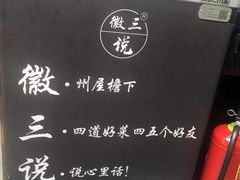 徽三®
说
徽·州屋檐下
三·四道好菜四五个好友
说·说心里话!